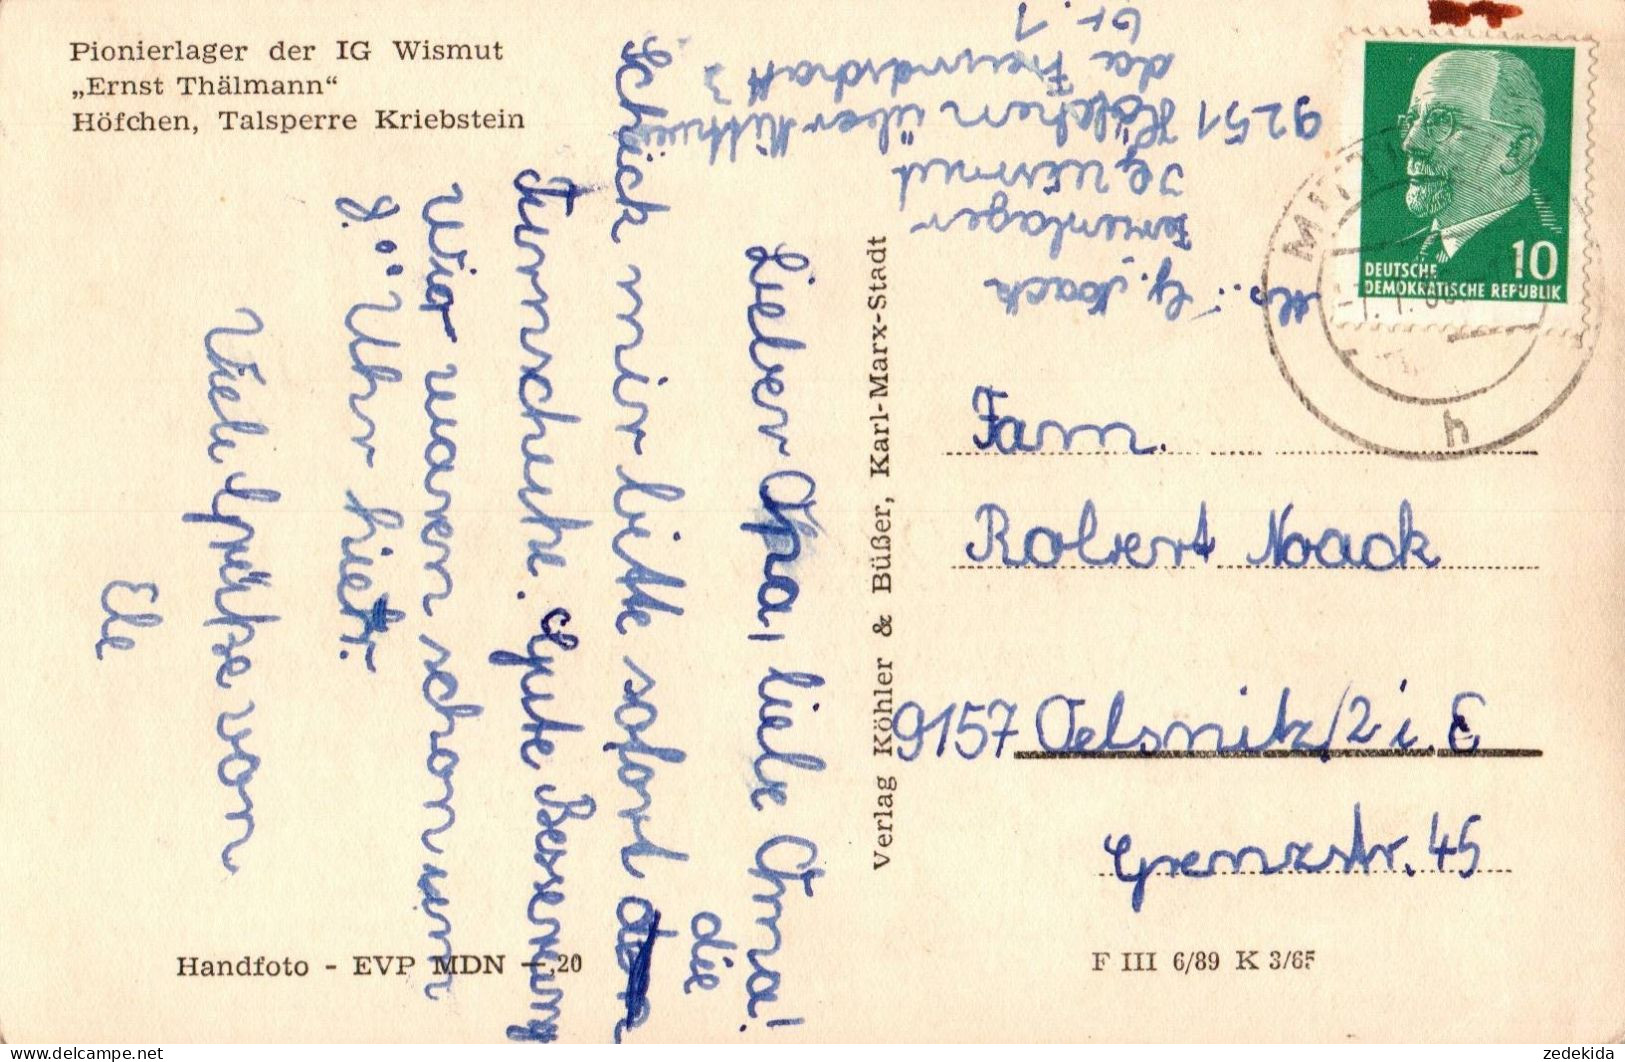 Pionierlager der IG Wismut
„Ernst Thälmann“
Höfchen, Talsperre Kriebstein
Lieber Opa, liebe Oma!
Schick mir bitte sofort die
Turnschuhe. Gute Besserung
Wir waren schon um
9.00 Uhr hier.
Viele Grüße von
Ele
Verlag Köhler & Büßer, Karl-Marx-Stadt
Abs.: G. Noack
Ferienlager
IG Wismut
9251 Höfchen über Mittwei
da Freundschaft
Gr. 1
DEUTSCHE
DEMOKRATISCHE REPUBLIK
10
MITTW
h
Fam.
Robert Noack
9157 Oelsnitz/2 i. E
Grenzstr. 45
Handfoto - EVP MDN -,20
F III 6/89 K 3/65
zedekida